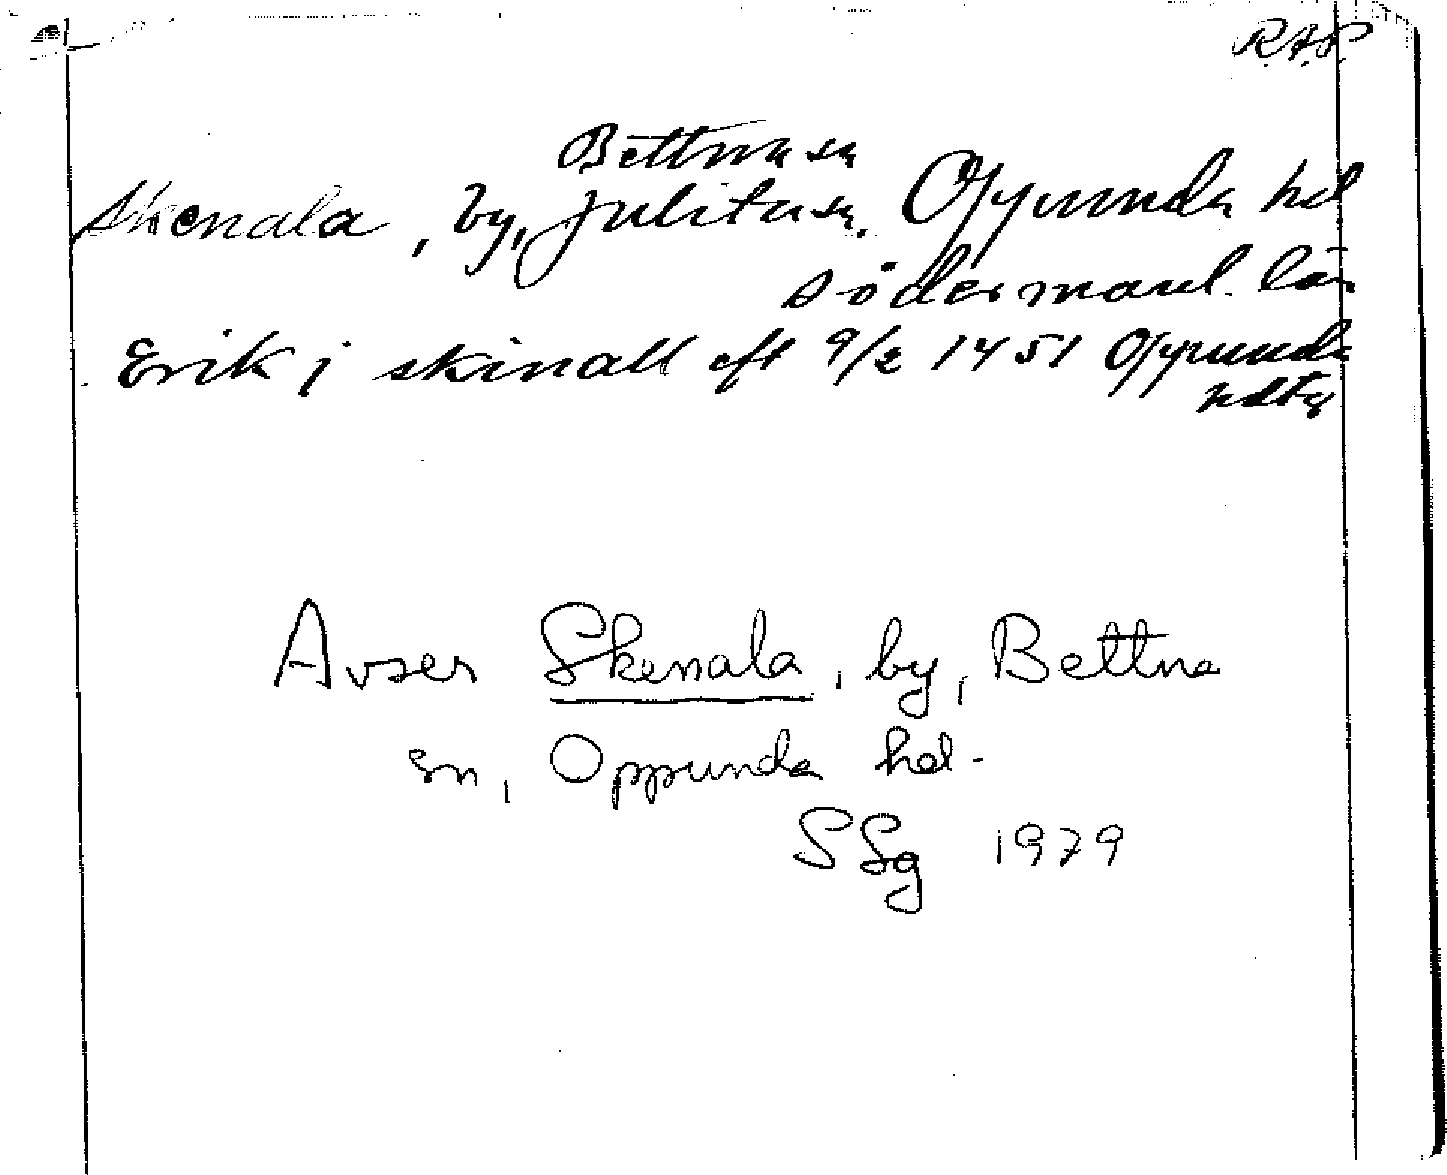 RAP
Bettna sn
Skenala, by, Julita sn, Oppunda hd
Södermanl. län
Erik j skinall eft 9/2 1451 Oppunda
hdtg
Avser Skenala, by, Bettna
sn, Oppunda hd.
SSg 1979